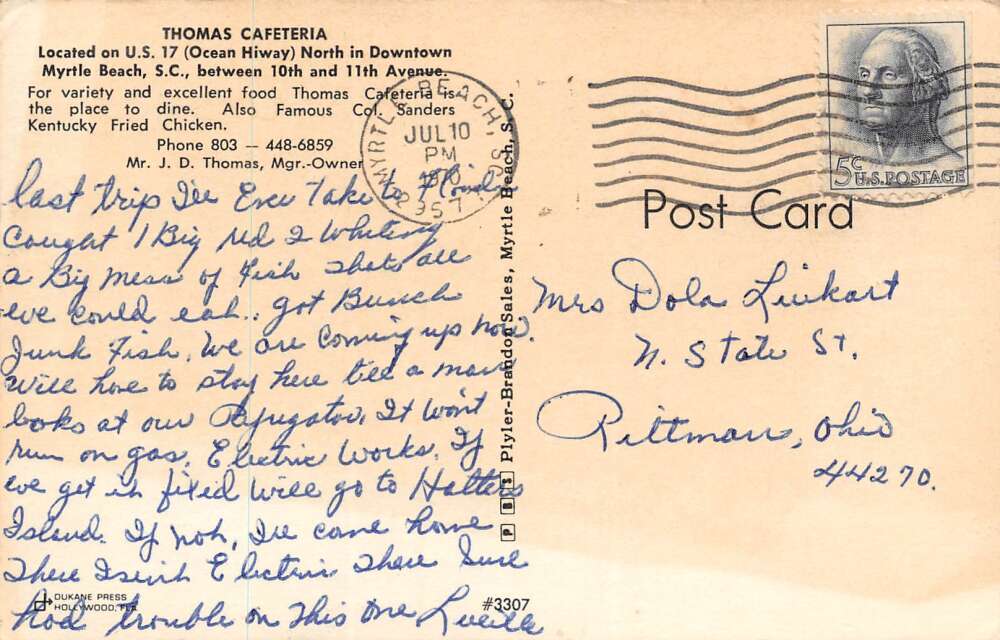 THOMAS CAFETERIA
Located on U.S. 17 (Ocean Hiway) North in Downtown
Myrtle Beach, S.C., between 10th and 11th Avenue.
For variety and excellent food Thomas Cafeteria is
the place to dine. Also Famous Col. Sanders
Kentucky Fried Chicken.
Phone 803 — 448-6859
Mr. J. D. Thomas, Mgr.-Owner
last trip I'll Ever Take to Florida
Caught 1 Big Red 2 Whiting
a Big mess of Fish Thats all
we could eat.. got Bunch
Junk Fish, We are Coming up now.
Will have to stay here till a man
looks at our Refrigator, It won't
run on gas, Electric Works. If
we get it fixed will go to Halters
Island. If not, I'll come home
There Isent Electric There Sure
had trouble on This one Lucille
DUKANE PRESS
HOLLYWOOD, FLA
#3307
PBS Plyler-Brandon Sales, Myrtle Beach, S.C.
MYRTLE BEACH, SC
JUL 10
PM
1970
29577
5¢
U.S. POSTAGE
Post Card
Mrs Dola Linkart
N. State St.
Rittman, Ohio
44270.